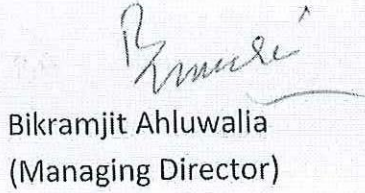 Bikramjit Ahluwalia
(Managing Director)